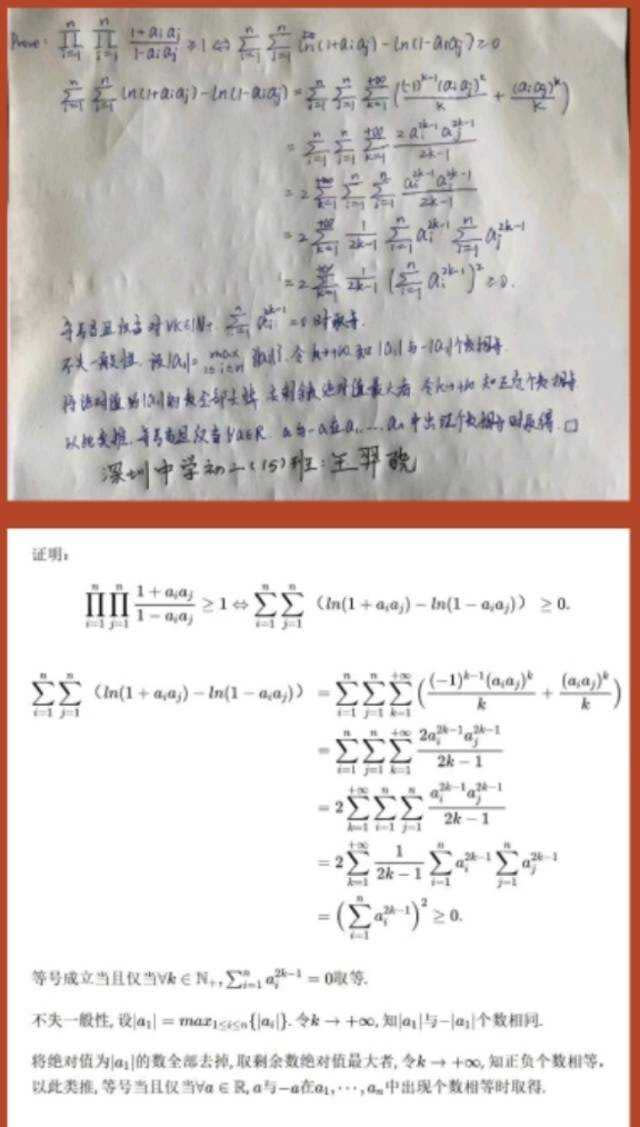 Prove: \prod_{i=1}^{n} \prod_{j=1}^{n} \frac{1+a_i a_j}{1-a_i a_j} ≥ 1 ⇔ \sum_{i=1}^{n} \sum_{j=1}^{n} ln(1+a_i a_j) - ln(1-a_i a_j) ≥ 0
\sum_{i=1}^{n} \sum_{j=1}^{n} ln(1+a_i a_j) - ln(1-a_i a_j) = \sum_{i=1}^{n} \sum_{j=1}^{n} \sum_{k=1}^{+∞} ( \frac{(-1)^{k-1}(a_i a_j)^k}{k} + \frac{(a_i a_j)^k}{k} )
= \sum_{i=1}^{n} \sum_{j=1}^{n} \sum_{k=1}^{+∞} \frac{2 a_i^{2k-1} a_j^{2k-1}}{2k-1}
= 2 \sum_{k=1}^{+∞} \sum_{i=1}^{n} \sum_{j=1}^{n} \frac{a_i^{2k-1} a_j^{2k-1}}{2k-1}
= 2 \sum_{k=1}^{+∞} \frac{1}{2k-1} \sum_{i=1}^{n} a_i^{2k-1} \sum_{j=1}^{n} a_j^{2k-1}
= 2 \sum_{k=1}^{+∞} \frac{1}{2k-1} ( \sum_{i=1}^{n} a_i^{2k-1} )^2 ≥ 0.
等号当且仅当对∀k∈N+ \sum_{i=1}^{n} a_i^{2k-1} = 0时取等.
不失一般性, 设|a_1| = max_{1≤i≤n} {|a_i|}. 令k→+∞, 知|a_1|与-|a_1|个数相等.
将绝对值为|a_1|的数全部去掉, 去剩余绝对值最大者, 令k→+∞, 知正负个数相等
以此类推, 等号当且仅当∀a∈R, a与-a在a_1, …, a_n中出现个数相等时取得. □
深圳中学初二(15)班: 王羿皓
证明:
\prod_{i=1}^{n} \prod_{j=1}^{n} \frac{1+a_i a_j}{1-a_i a_j} ≥ 1 ⇔ \sum_{i=1}^{n} \sum_{j=1}^{n} （ln(1+a_i a_j) - ln(1-a_i a_j)） ≥ 0.
\sum_{i=1}^{n} \sum_{j=1}^{n} （ln(1+a_i a_j) - ln(1-a_i a_j)） = \sum_{i=1}^{n} \sum_{j=1}^{n} \sum_{k=1}^{+∞} ( \frac{(-1)^{k-1}(a_i a_j)^k}{k} + \frac{(a_i a_j)^k}{k} )
= \sum_{i=1}^{n} \sum_{j=1}^{n} \sum_{k=1}^{+∞} \frac{2a_i^{2k-1} a_j^{2k-1}}{2k-1}
= 2 \sum_{k=1}^{+∞} \sum_{i=1}^{n} \sum_{j=1}^{n} \frac{a_i^{2k-1} a_j^{2k-1}}{2k-1}
= 2 \sum_{k=1}^{+∞} \frac{1}{2k-1} \sum_{i=1}^{n} a_i^{2k-1} \sum_{j=1}^{n} a_j^{2k-1}
= ( \sum_{i=1}^{n} a_i^{2k-1} )^2 ≥ 0.
等号成立当且仅当∀k ∈ N_+, \sum_{i=1}^{n} a_i^{2k-1} = 0取等.
不失一般性, 设|a_1| = max_{1≤i≤n}{|a_i|}. 令k → +∞, 知|a_1|与-|a_1|个数相同.
将绝对值为|a_1|的数全部去掉, 取剩余数绝对值最大者, 令k → +∞, 知正负个数相等.
以此类推, 等号当且仅当∀a ∈ R, a与-a在a_1, ⋯, a_n中出现个数相等时取得.